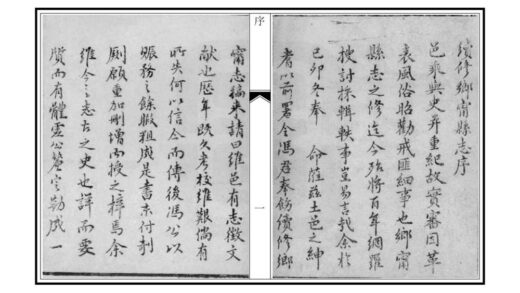 續修鄉甯縣志序
邑乘與史并重紀故實審因革
表風俗昭勸戒匪細事也鄉甯
縣志之修迄今殆將百年網羅
搜討採輯軼事豈易言哉余於
己卯冬奉 命蒞茲土邑之紳
者以前署令馮君奉飭續修鄉
序
一
甯志稿來請曰維邑有志徵文
献也歷年既久考校維艱儻有
所失何以信今而傳後馮公以
賑務之餘暇粗成是書未付剞
劂願重加刪增而授之梓焉余
維今之志古之史也詳而要
質而有體成一